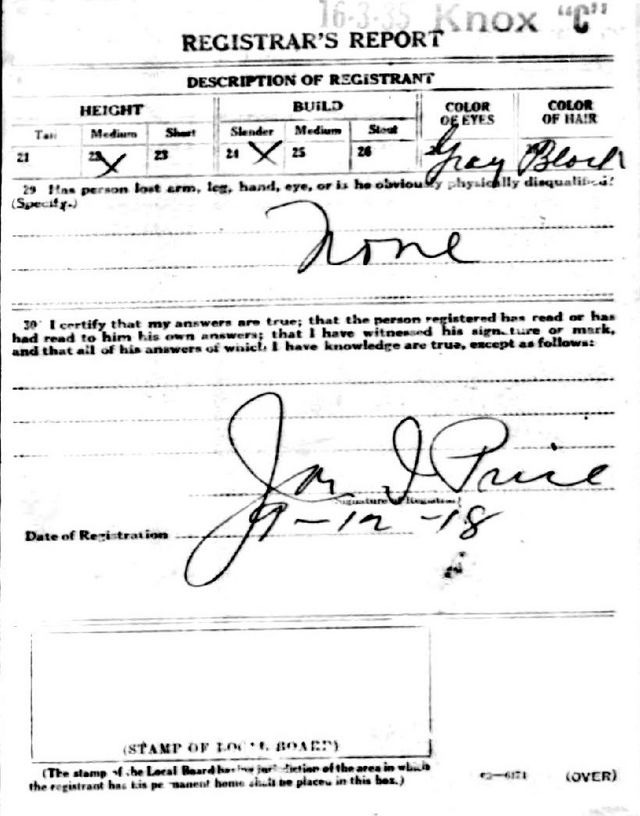 16-3-35 Knox "C"
REGISTRAR'S REPORT
DESCRIPTION OF REGISTRANT
HEIGHT BUILD COLOR OF EYES COLOR OF HAIR
Tall Medium Short Slender Medium Stout
21 22 X 23 24 X 25 26 27 Gray 28 Black
29 Has person lost arm, leg, hand, eye, or is he obviously physically disqualified?
(Specify.)
None
30 I certify that my answers are true; that the person registered has read or has
had read to him his own answers; that I have witnessed his signature or mark,
and that all of his answers of which I have knowledge are true, except as follows:
I Price
Date of Registration 9-12-18
(STAMP OF LOCAL BOARD)
(The stamp of the Local Board having jurisdiction of the area in which
the registrant has his permanent home shall be placed in this box.)
(OVER)